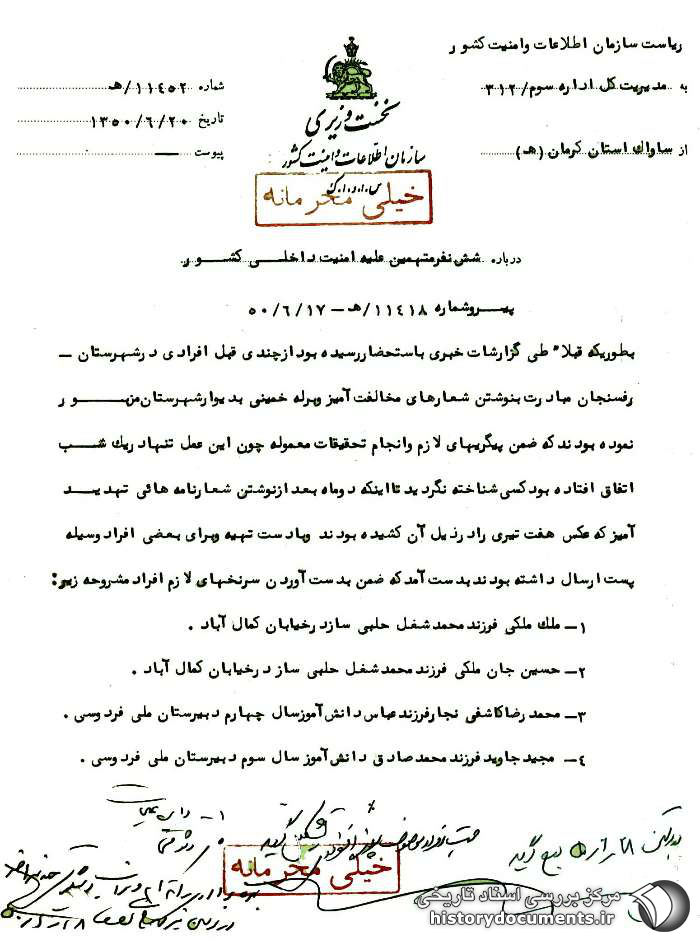 ریاست سازمان اطلاعات وامنیت کشور
به مدیریت کل اداره سوم/ ۳۱۲
از ساواک استان کرمان (هـ)
نخست وزیری
سازمان اطلاعات و امنیت کشور
س.ا.و.ا.ک
خیلی محرمانه
شماره ۱۱۴۵۲/هـ
تاریخ ۱۳۵۰/۶/۲۰
پیوست —
درباره شش نفرمتهمین علیه امنیت داخلی کشور
پیروشماره ۱۱۴۱۸/هـ – ۵۰/۶/۱۷
بطوریکه قبلا" طی گزارشات خبری باستحضاررسیده بودازچندی قبل افرادی درشهرستان –
رفسنجان مبادرت بنوشتن شعارهای مخالفت آمیز وبرله خمینی بدیوارشهرستان مزبور
نموده بودند که ضمن پیگریهای لازم وانجام تحقیقات معموله چون این عمل تنهادریک شب
اتفاق افتاده بودکسی شناخته نگردیدتااینکه دوماه بعدازنوشتن شعارنامه هائی تهدید
آمیز که عکس هفت تیری رادرذیل آن کشیده بودند وبادست تهیه وبرای بعضی افراد وسیله
پست ارسال داشته بودندبدست آمدکه ضمن بدست آوردن سرنخهای لازم افراد مشروحه زیر:
۱– ملک ملکی فرزند محمدشغل حلبی سازدرخیابان کمال آباد .
۲– حسین جان ملکی فرزند محمدشغل حلبی ساز درخیابان کمال آباد .
۳– محمدرضاکاشفی نجارفرزندعباس دانش آموزسال چهارم دبیرستان ملی فردوسی .
۴– مجیدجاوید فرزند محمدصادق دانش آموز سال سوم دبیرستان ملی فردوسی .
خیلی محرمانه
مرکز بررسی اسناد تاریخی
historydocuments.ir